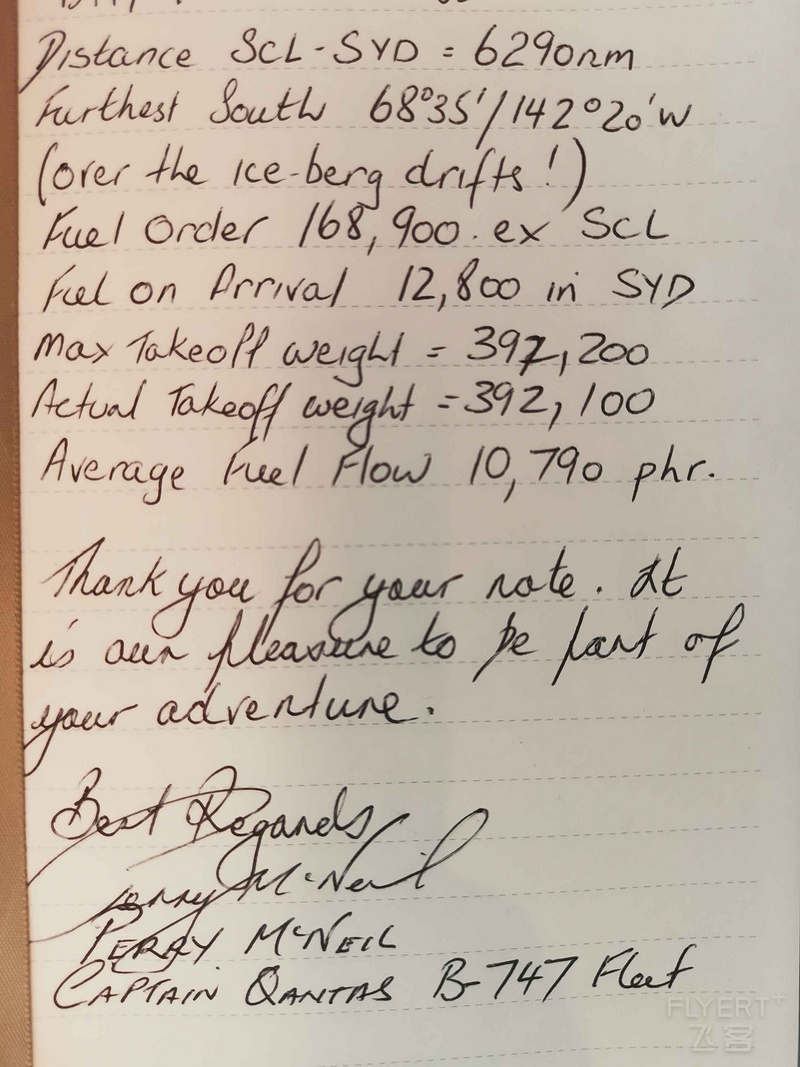 Distance SCL-SYD = 6290nm
Furthest South 68°35'/142°20'W
(over the ice-berg drifts!)
Fuel Order 168,900. ex SCL
Fuel on Arrival 12,800 in SYD
Max Takeoff weight = 397,200
Actual Takeoff weight = 392,100
Average Fuel Flow 10,790 phr.
Thank you for your note. It
is our pleasure to be part of
your adventure.
Best Regards
Perry McNeil
PERRY McNEIL
CAPTAIN QANTAS B-747 Fleet
FLYERT+
飞客